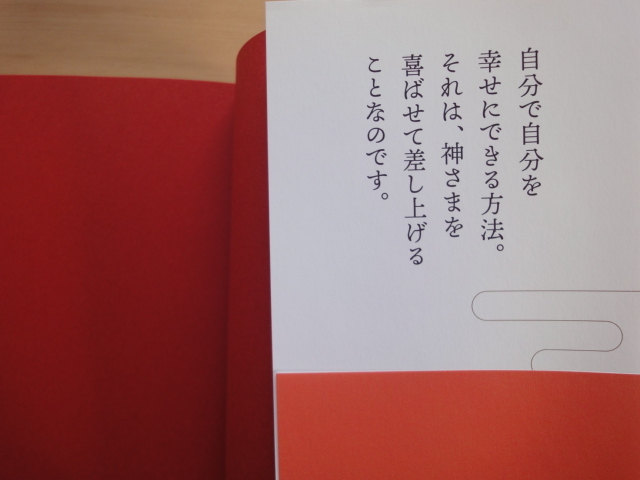 自分で自分を
幸せにできる方法。
それは、神さまを
喜ばせて差し上げる
ことなのです。